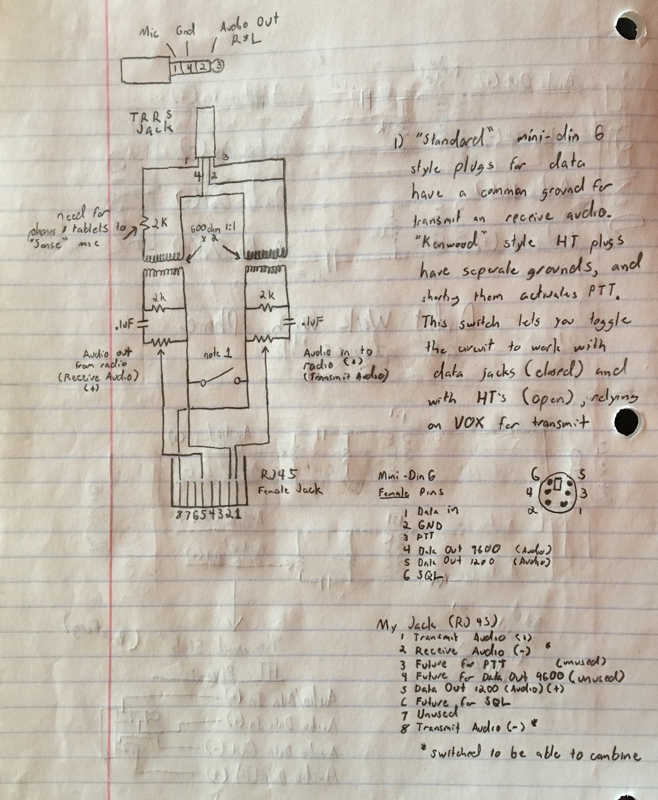 Mic Gnd Audio Out
R&L
1 4 2 3
TRRS
Jack
1 3
4 2
need for
phones & tablets to
"sense" mic
2K
600 ohm 1:1
x 2
2k
2k
.1uF
.1uF
Audio out
from radio
(Receive Audio)
(+)
note 1
Audio in to
radio (+)
(Transmit Audio)
RJ45
Female Jack
87654321
1) "Standard" mini-din 6
style plugs for data
have a common ground for
transmit an receive audio.
"Kenwood" style HT plugs
have seperate grounds, and
shorting them activates PTT.
This switch lets you toggle
the circuit to work with
data jacks (closed) and
with HT's (open), relying
on VOX for transmit
Mini-Din 6
Female Pins
1 Data in
2 GND
3 PTT
4 Data Out 9600 (Audio)
5 Data Out 1200 (Audio)
6 SQL
6 5
4 3
2 1
My Jack (RJ45)
1 Transmit Audio (+)
2 Receive Audio (-) *
3 Future for PTT (unused)
4 Future for Data Out 9600 (unused)
5 Data Out 1200 (Audio) (+)
6 Future for SQL
7 Unused
8 Transmit Audio (-) *
* switched to be able to combine